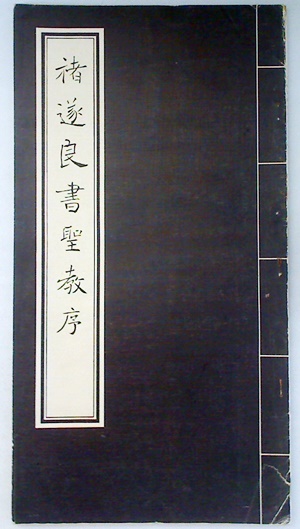 褚遂良書聖教序